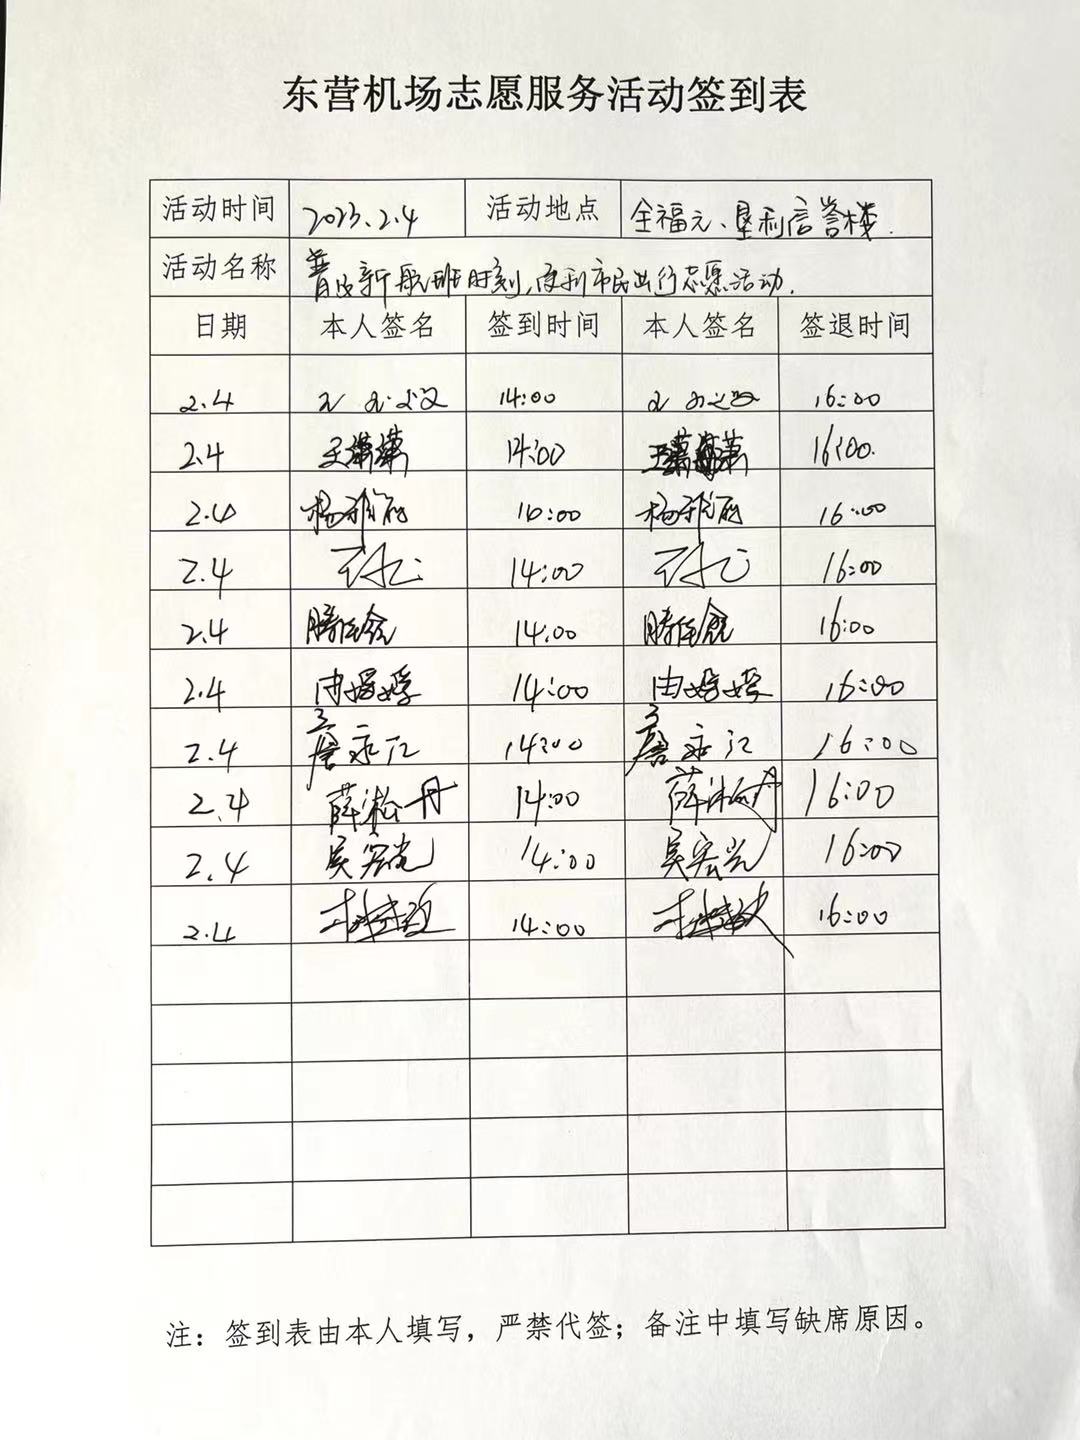 东营机场志愿服务活动签到表
活动时间 2023.2.4 活动地点 全福元、垦利信誉楼.
活动名称 普及新航班时刻,便利市民出行志愿活动.
日期 本人签名 签到时间 本人签名 签退时间
2.4 14:00 16:00
2.4 王潇潇 14:00 16:00.
2.4 16:00 16:00
2.4 14:00 16:00
2.4 14:00 16:00
2.4 由婷婷 14:00 由婷婷 16:00
2.4 唐永江 14:00 唐永江 16:00
2.4 薛淞丹 14:00 薛淞丹 16:00
2.4 吴宏光 14:00 吴宏光 16:00
2.4 14:00 16:00
注：签到表由本人填写，严禁代签；备注中填写缺席原因。